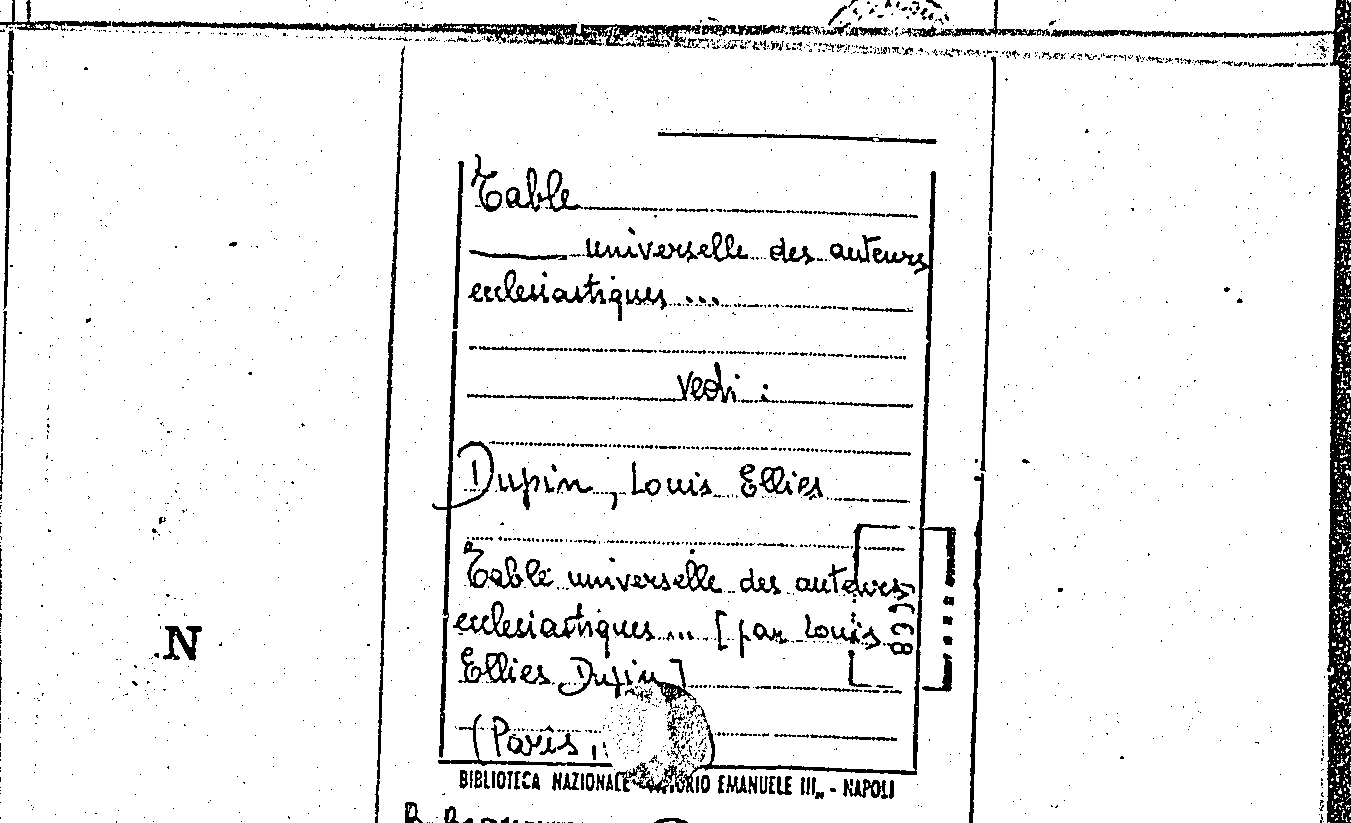 Table
universelle des auteurs
ecclesiastiques ...
vedi :
Dupin, Louis Ellies
Table universelle des auteurs
ecclesiastiques ... [par Louis
Ellies Dupin]
(Paris,
BIBLIOTECA NAZIONALE EMANUELE III„ - NAPOLI
ICCB
N